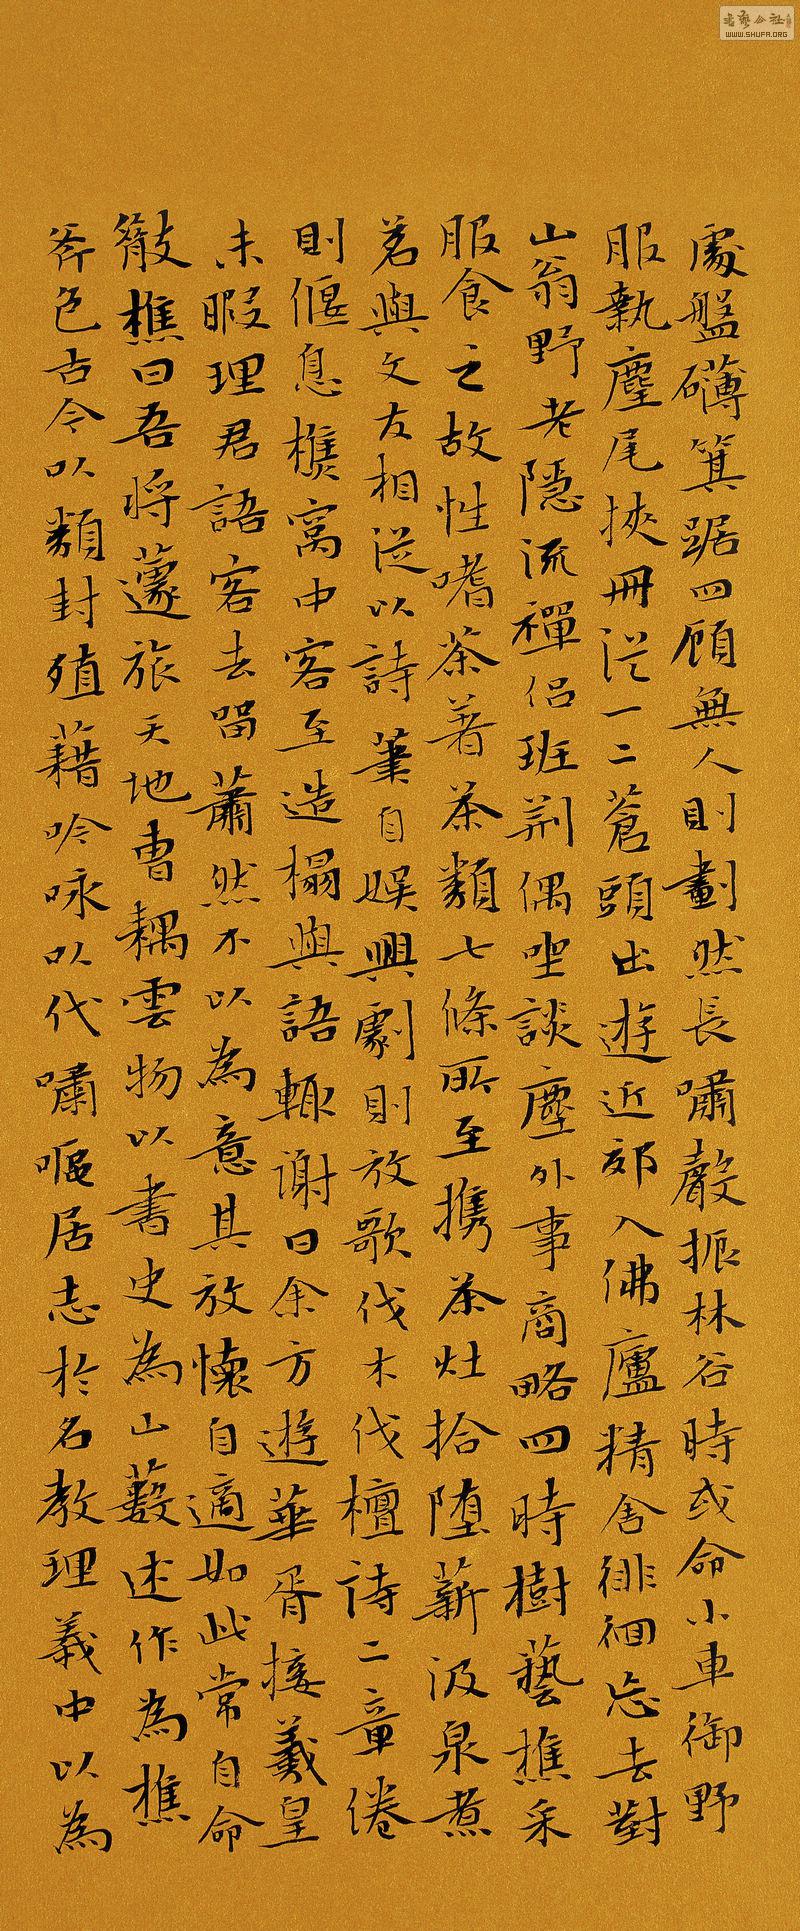 處盤礴箕踞四顧無人則劃然長嘯聲振林谷時或命小車御野
服執麈尾挾冊從一二蒼頭出遊近郊入佛廬精舍徘徊忘去對
山翁野老隱流禪侣班荆偶坐談塵外事商略四時樹藝樵采
服食之故性嗜茶著茶類七條所至携茶灶拾堕薪汲泉煮
茗與文友相從以詩筆自娱興劇則放歌伐木伐檀詩二章倦
則偃息樵窩中客至造榻與語輒谢曰余方遊華胥接羲皇
未暇理君語客去留蕭然不以為意其放懷自適如此常自命
散樵曰吾将蘧旅天地曹耦雲物以書史為山薮述作為樵
斧色古今以類封殖藉吟咏以代嘯呕居志於名教理義中以為
書藝公社
WWW.SHUFA.ORG